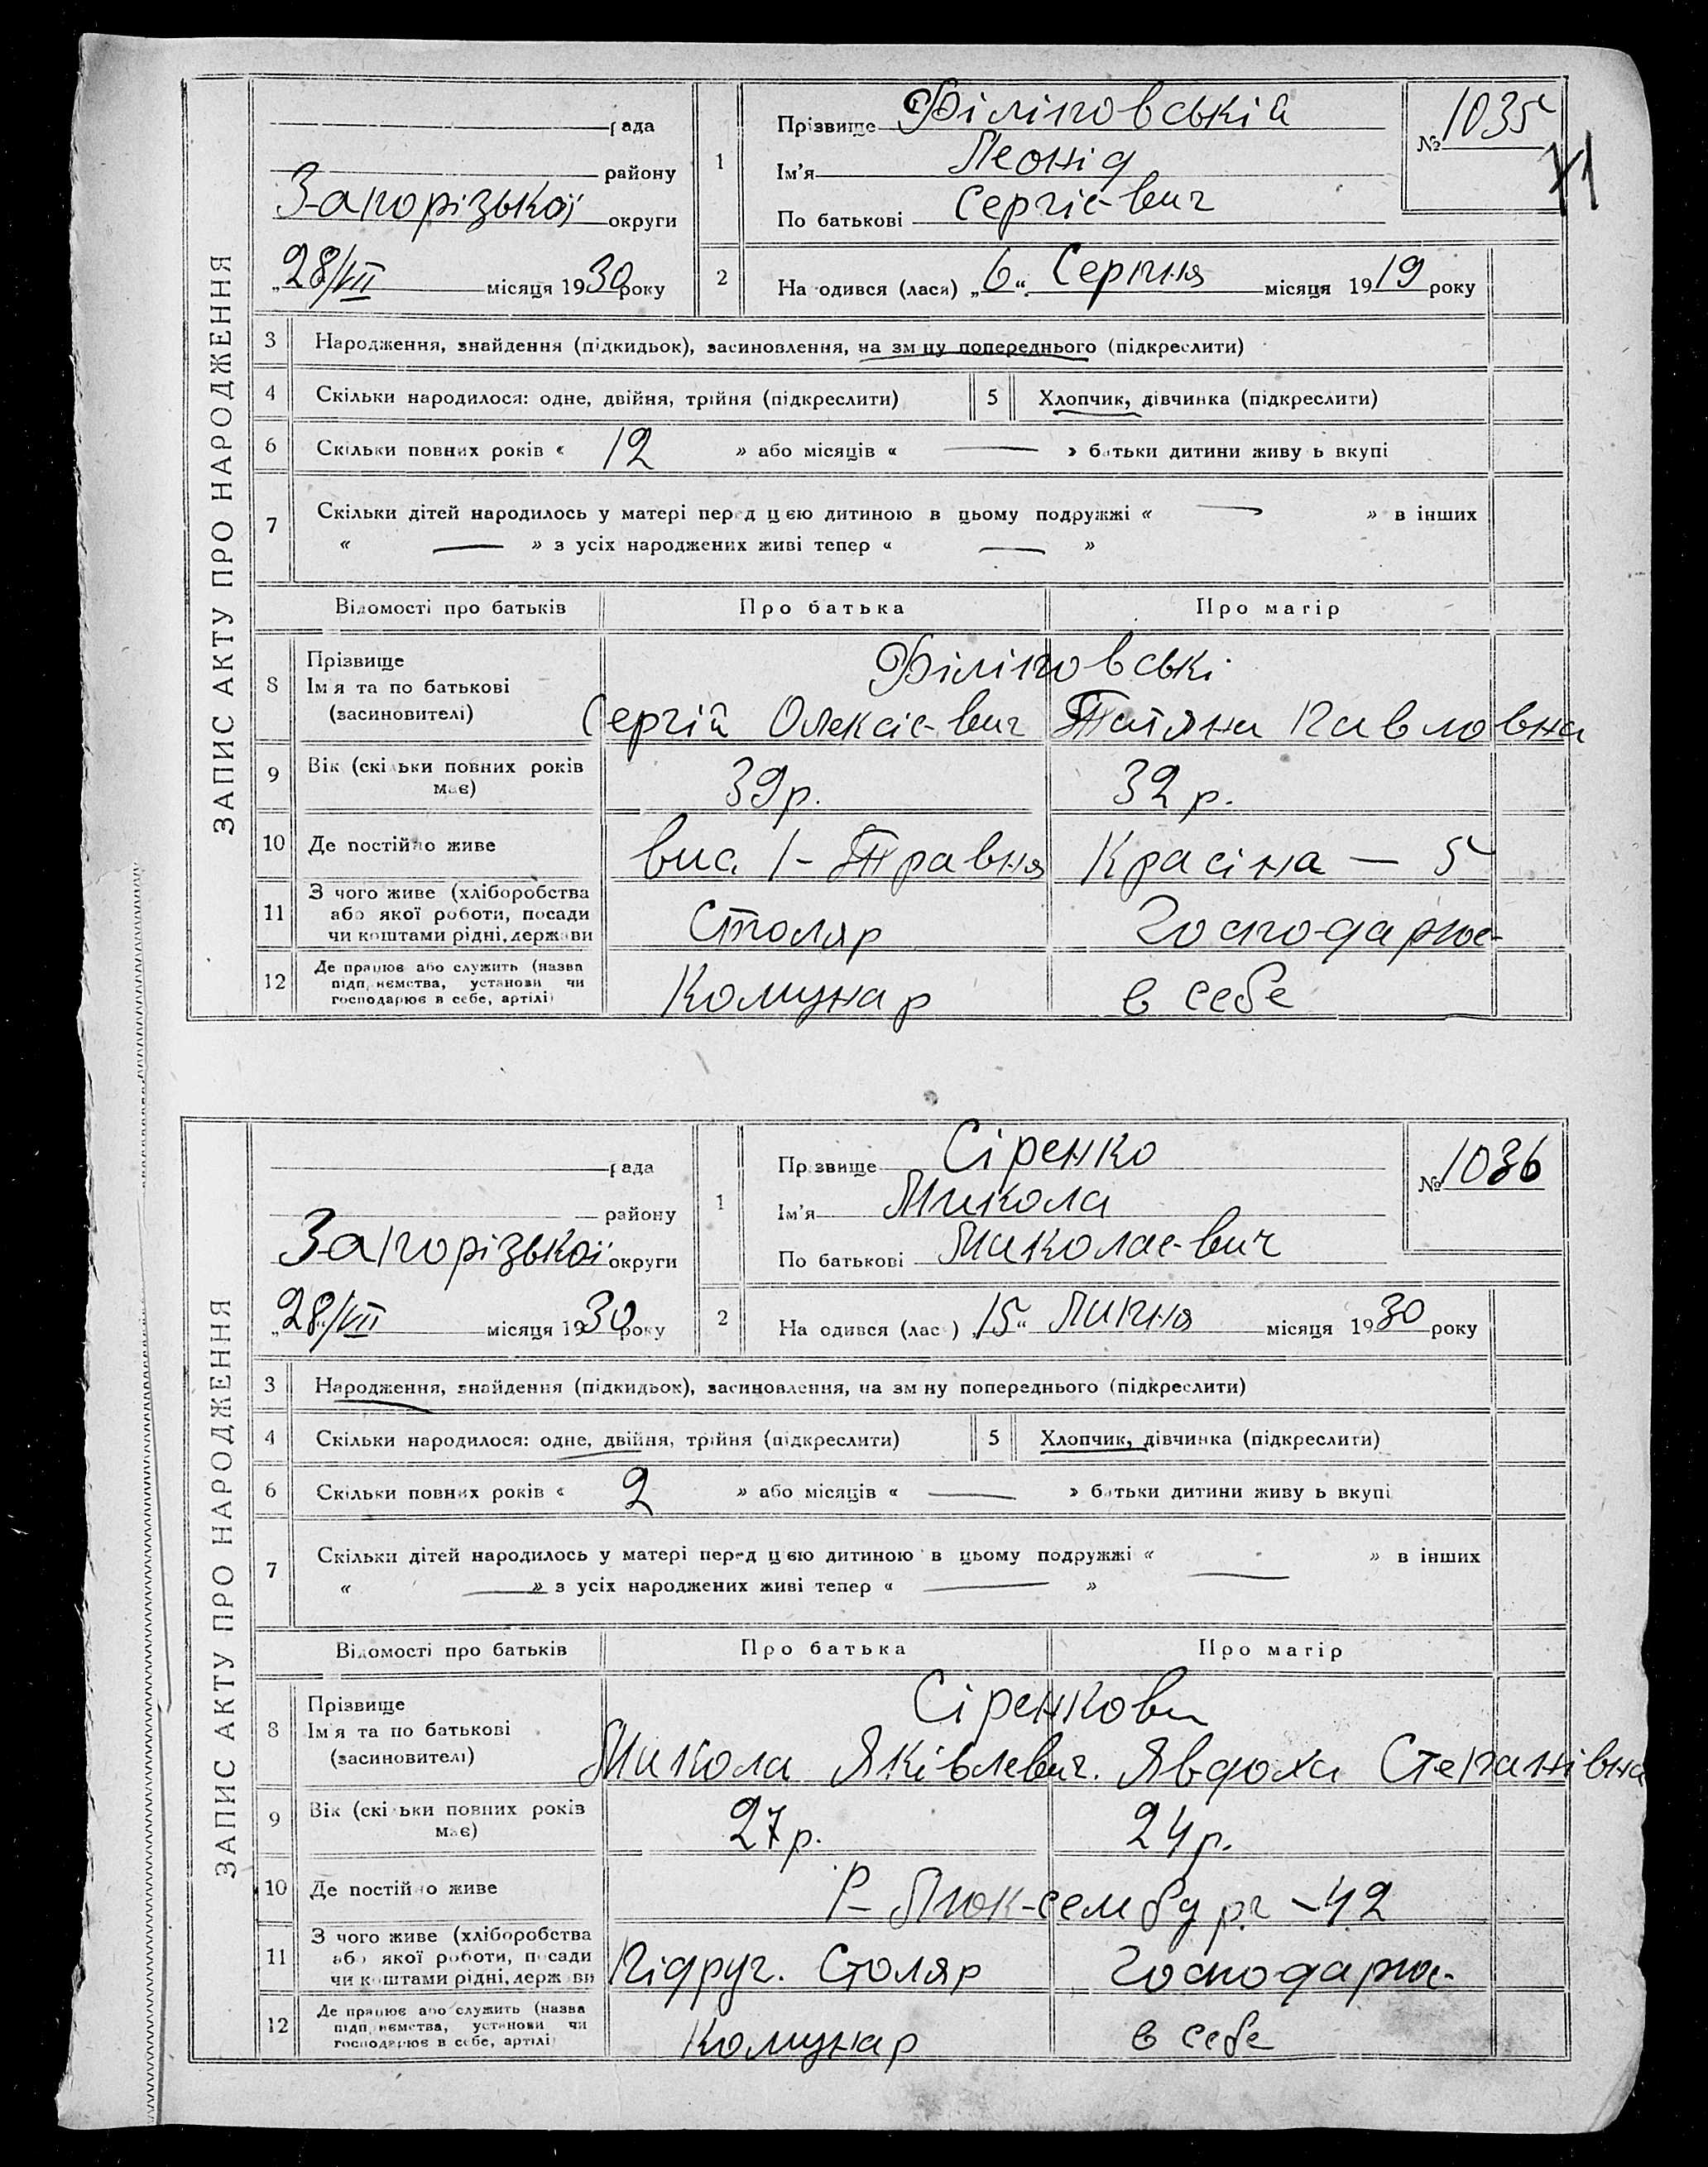 ЗАПИС АКТУ ПРО НАРОДЖЕННЯ
рада
району
Запорізької округи
„28/VII місяця 1930 року
1
Прізвище Філіповській
Ім'я Леонід
По батькові Сергіє-вич
№ 1035
2
На одився (лася) „6“ Серпня місяця 1919 року
3 Народження, знайдення (підкидьок), засиновлення, на зм ну попереднього (підкреслити)
4 Скільки народилося: одне, двійня, трійня (підкреслити) 5 Хлопчик, дівчинка (підкреслити)
6 Скільки повних років « 12 » або місяців « — » батьки дитини живу ь вкупі
7 Скільки дітей народилось у матері перед цею дитиною в цьому подружжі « — » в інших
« — » з усіх народжених живі тепер « — »
Відомості про батьків Про батька Про матір
8 Прізвище Філіповські
Ім я та по батькові
(засиновителі) Сергій Олексіє-вич Татяна Павловна
9 Вік (скільки повних років має) 39 р. 32 р.
10 Де постійно живе вис. 1-Травня Красіна — 5
11 З чого живе (хліборобства
або якої роботи, посади Столяр Господарює-
чи коштами рідні, держави
12 Де працює або служить (назва
підп иємства, установи чи Комунар в себе
господарює в себе, артілі)
ЗАПИС АКТУ ПРО НАРОДЖЕННЯ
рада
району
Запорізької округи
„28/VII місяця 1930 року
1
Пр звище Сіренко
Ім'я Микола
По батькові Миколає-вич
№ 1036
2
На одився (лас ) „15“ Липня місяця 1930 року
3 Народження, знайдення (підкидьок), засиновлення, на зм ну попереднього (підкреслити)
4 Скільки народилося: одне, двійня, трійня (підкреслити) 5 Хлопчик, дівчинка (підкреслити)
6 Скільки повних років « 2 » або місяців « — » батьки дитини живу ь вкупі
7 Скільки дітей народилось у матері перед цією дитиною в цьому подружжі « — » в інших
« — » з усіх народжених живі тепер « — »
Відомості про батьків Про батька Про матір
8 Прізвище Сіренкови
Ім я та по батькові
(засиновителі) Микола Яківлевич. Явдоха Степанівна
9 Вік (скі ьки повних років має) 27 р. 24 р.
10 Де постійно живе Р-Люк-сембург - 42
11 З чого живе (хліборобства
або якої роботи, посади Підруч. Столяр Господарює-
чи коштами рідні, держави
12 Де працює або служить (назва
підп иємства, установи чи Комунар в себе
господарює в себе, артілі)